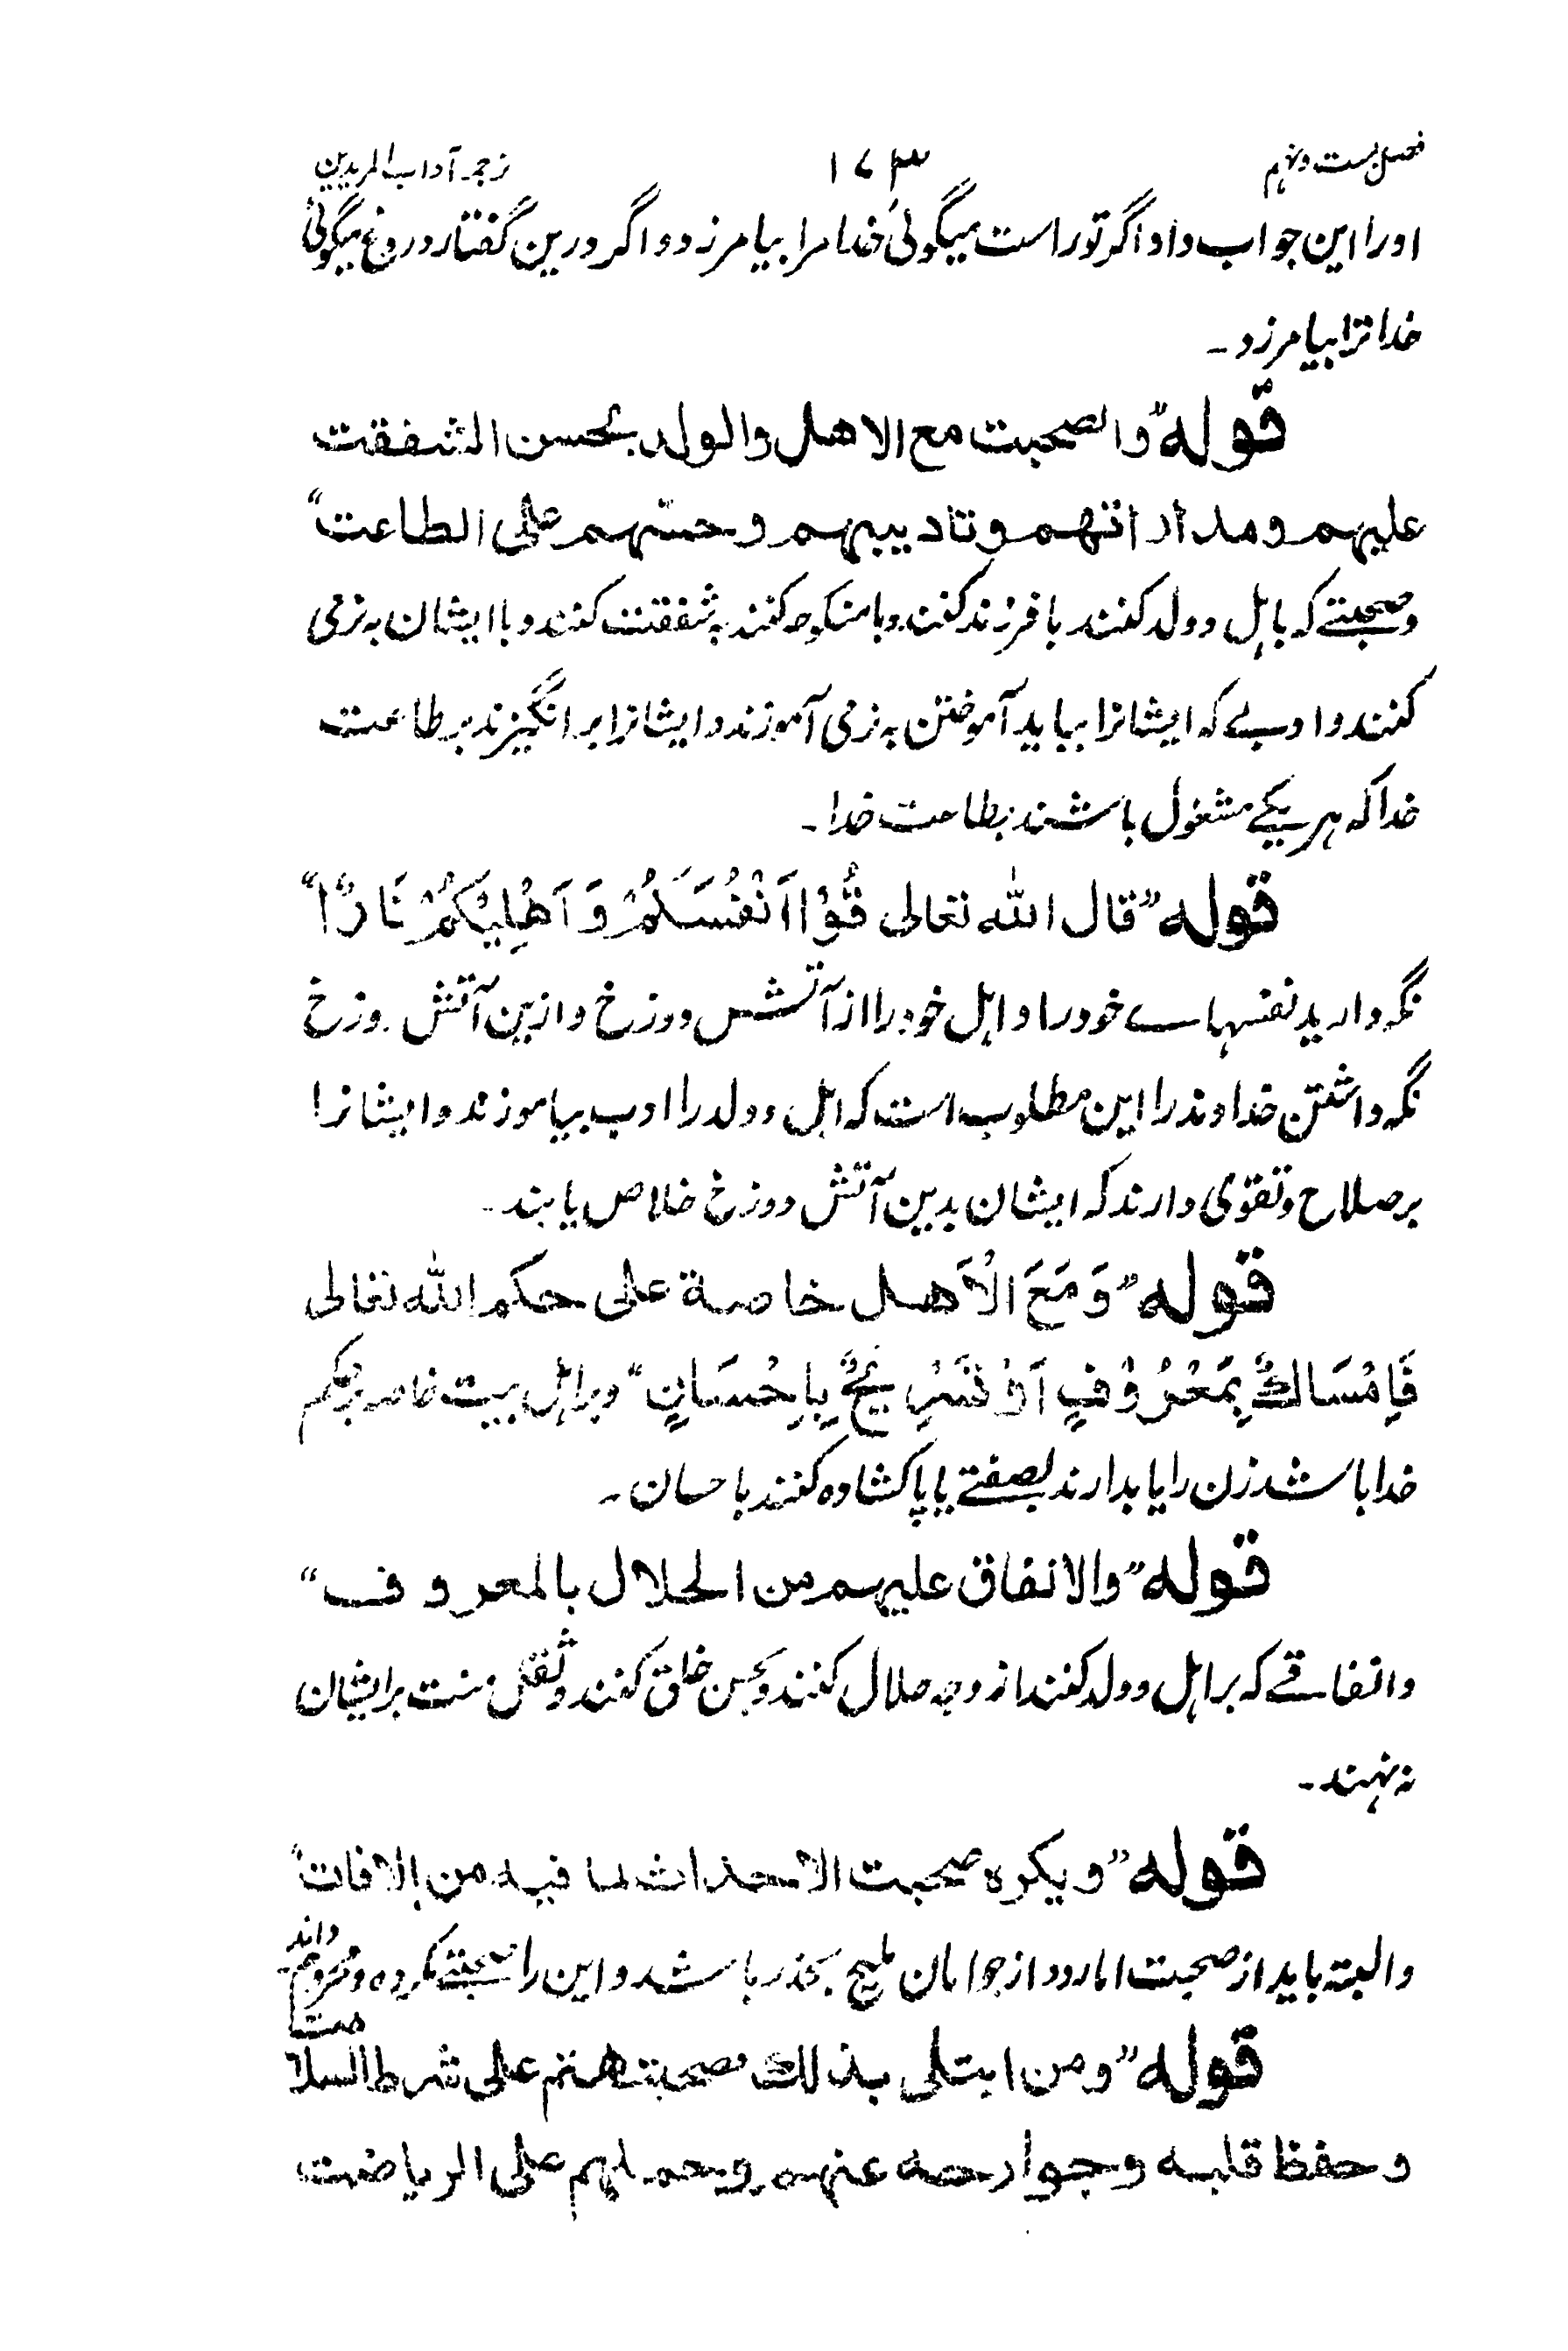 فصل بست و نهم ۱۷۳ ترجمہ آداب المریدین
اورا این جواب داد اگر تو راست میگوئی خدا مرا بیامرزد و اگر درین گفتار دروغ میگوئی
خدا ترا بیامرزد ۔
قوله "والصحبت مع الاهل والولد بحسن الشفقت
علیهم ومداراتهم وتادیبهم وحثهم علی الطاعت"
وصحبتے کہ باہل و ولد کنند با فرزند کنند و با منکوحہ کنند بہ شفقت کنند و با ایشان بہ نرمی
کنند و ادبے کہ ایشانرا بباید آموختن بہ نرمی آموزند و ایشانرا بر انگیزند بر طاعت
خدا کہ ہر یکے مشغول باشند بطاعت خدا ۔
قوله "قال الله تعالی قُوْا اَنْفُسَكُمْ وَ اَهْلِیْكُمْ نَارًا"
نگہ دارید نفسہاے خود را و اہل خود را از آتش دوزخ و ازین آتش دوزخ
نگہ داشتن خداوند را این مطلوب است کہ اہل و ولد را ادب بیاموزند و ایشانرا
بر صلاح و تقوی دارند کہ ایشان بدین آتش دوزخ خلاص یابند ۔
قوله "وَ مَعَ الْاَهل خاصة علی حکم الله تعالی
فَاِمْسَاكٌ بِمَعْرُوْفٍ اَوْ تَسْرِیْحٌ بِاِحْسَانٍ" و بر اہل بیت خاصہ بر حکم
خدا باشد زن را یا بدارند بصفتے یا پا کشادہ کنند باحسان ۔
قوله "والانفاق علیهم من الحلال بالمعروف"
و انفاقے کہ بر اہل و ولد کنند از وجہ حلال کنند و بحسن خلق کنند و ثقل منت بر ایشان
نہ نہند ۔
قوله "ویکره صحبت الاحداث لما فیه من الافات"
و البتہ باید از صحبت امارد و از جوانان ملیح بحذر باشد و این را صحبتے مکروہ و محروم دانند
قوله "ومن ابتلی بذلك فصحبته‍م علی شرط السلامت
وحفظ قلبه وجوارحه عنهم وحملهم علی الریاضت